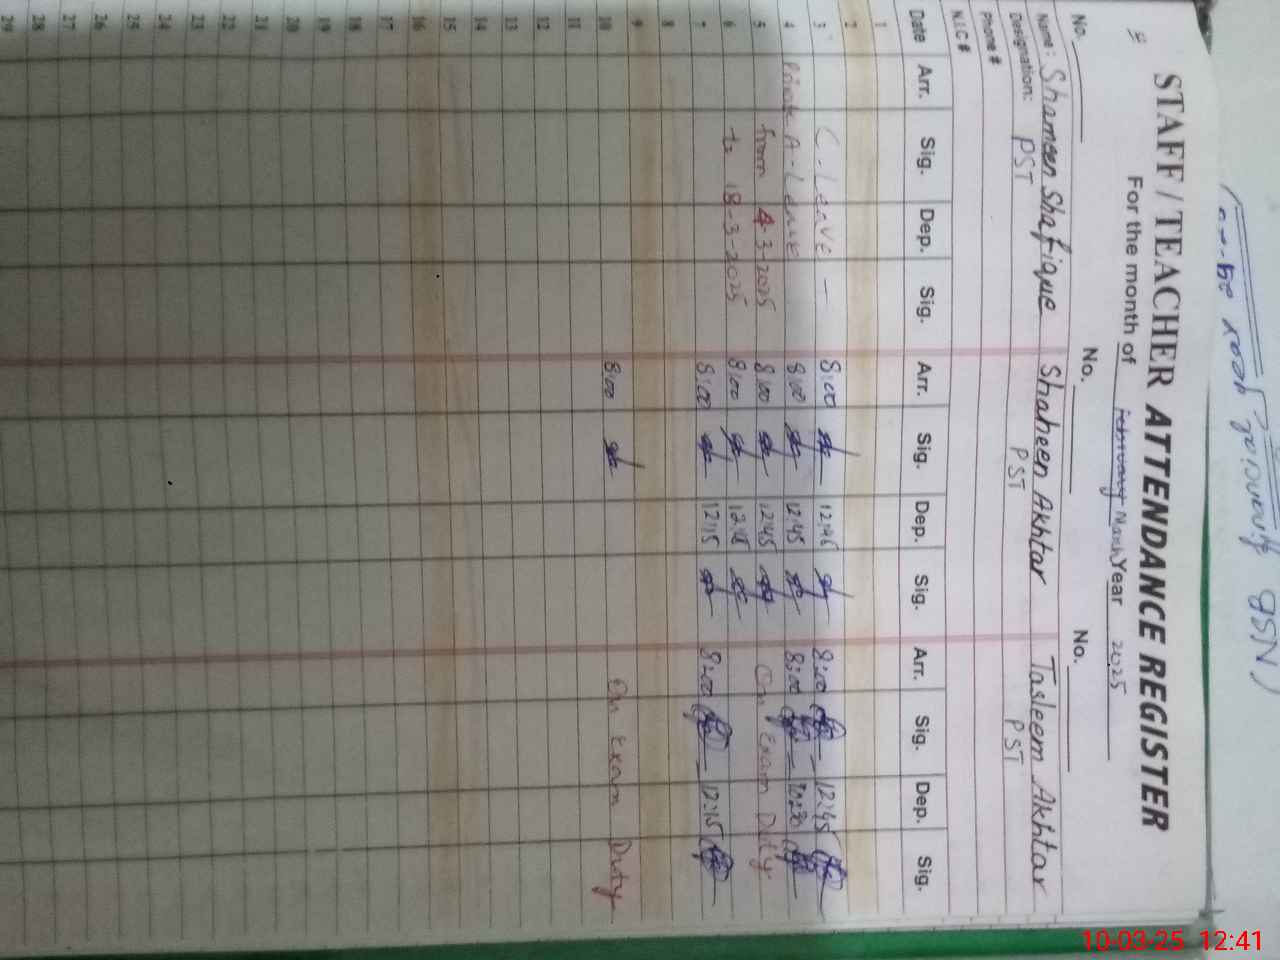 STAFF / TEACHER ATTENDANCE REGISTER
For the month of February March Year 2025
No. No. No.
Name: Shameen Shafique Shaheen Akhtar Tasleem Akhtar
Designation: PST PST PST
Phone #
N.I.C #
Date Arr. Sig. Dep. Sig. Arr. Sig. Dep. Sig. Arr. Sig. Dep. Sig.
1
2
3 C. Leave - 8:00 12:45 8:00 12:45
4 A-Leave 8:00 12:45 8:00
5 from 4-3-2025 8:00 12:45 On Exam Duty
6 to 18-3-2025 8:00
7 8:00 12:15 8:00 12:15
8
9
10 8:00 On Exam Duty
11
12
13
14
15
16
17
18
19
20
21
22
23
24
25
26
27
28
29
10-03-25 12:41